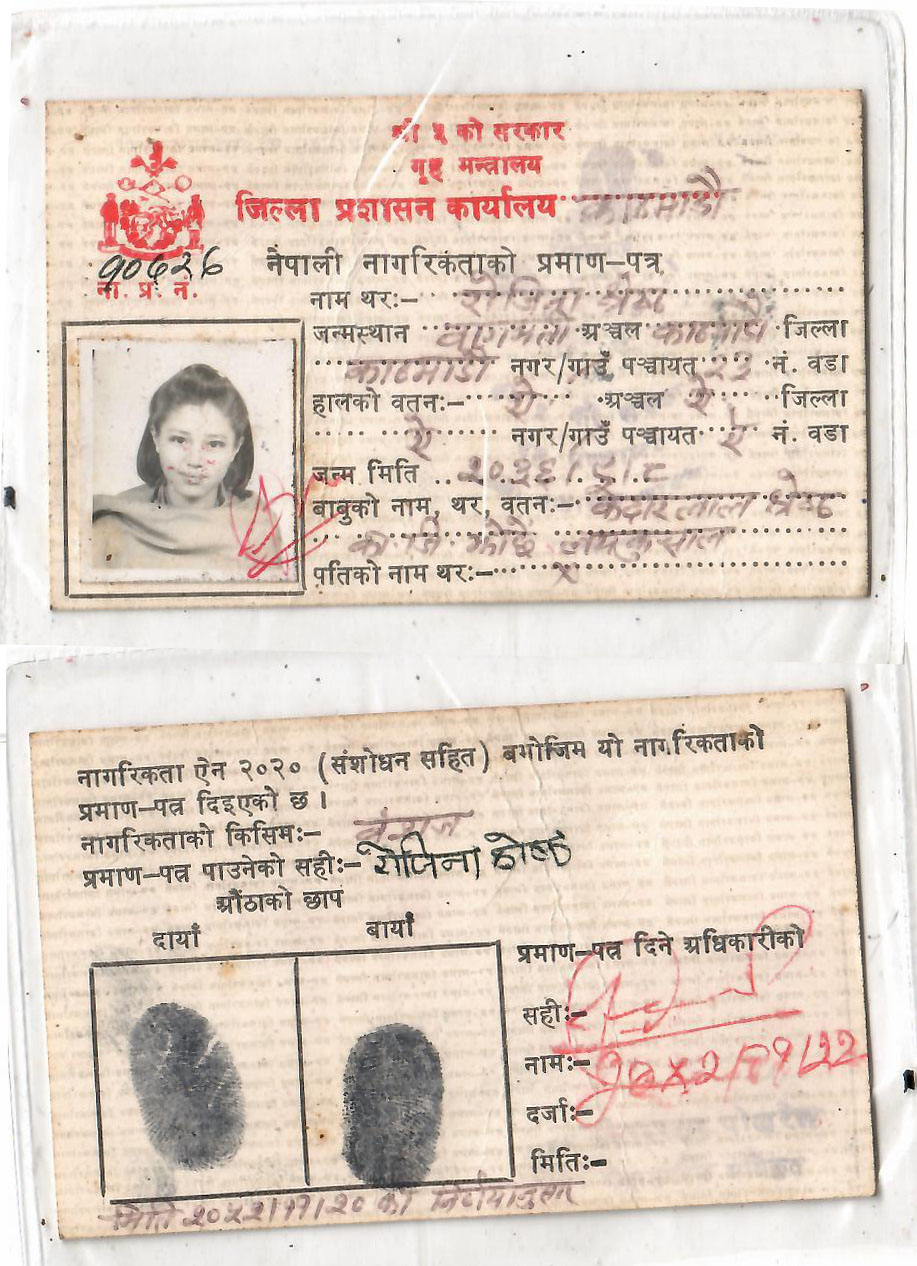 श्री ५ को सरकार
गृह मन्त्रालय
जिल्ला प्रशासन कार्यालय काठमाडौं
ना. प्र. नं.
नेपाली नागरिकताको प्रमाण-पत्र
नाम थर:- रोजिना श्रेष्ठ
जन्मस्थान वाग्मती अञ्चल काठमाडौं जिल्ला
काठमाडौं नगर/गाउँ पञ्चायत २३ नं. वडा
हालको वतन:- ऐ अञ्चल ऐ जिल्ला
ऐ नगर/गाउँ पञ्चायत ऐ नं. वडा
जन्म मिति
बाबुको नाम, थर, वतन:- केदार लाल श्रेष्ठ
पतिको नाम थर:- x
नागरिकता ऐन २०२० (संशोधन सहित) बमोजिम यो नागरिकताको
प्रमाण-पत्र दिइएको छ ।
नागरिकताको किसिम:- वंशज
प्रमाण-पत्र पाउनेको सही:- रोजिना श्रेष्ठ
औंठाको छाप
दायाँ बायाँ
प्रमाण-पत्र दिने अधिकारीको
सही:-
नाम:-
दर्जा:-
मिति:-
मिति २०५२/११/२० को निर्णयानुसार